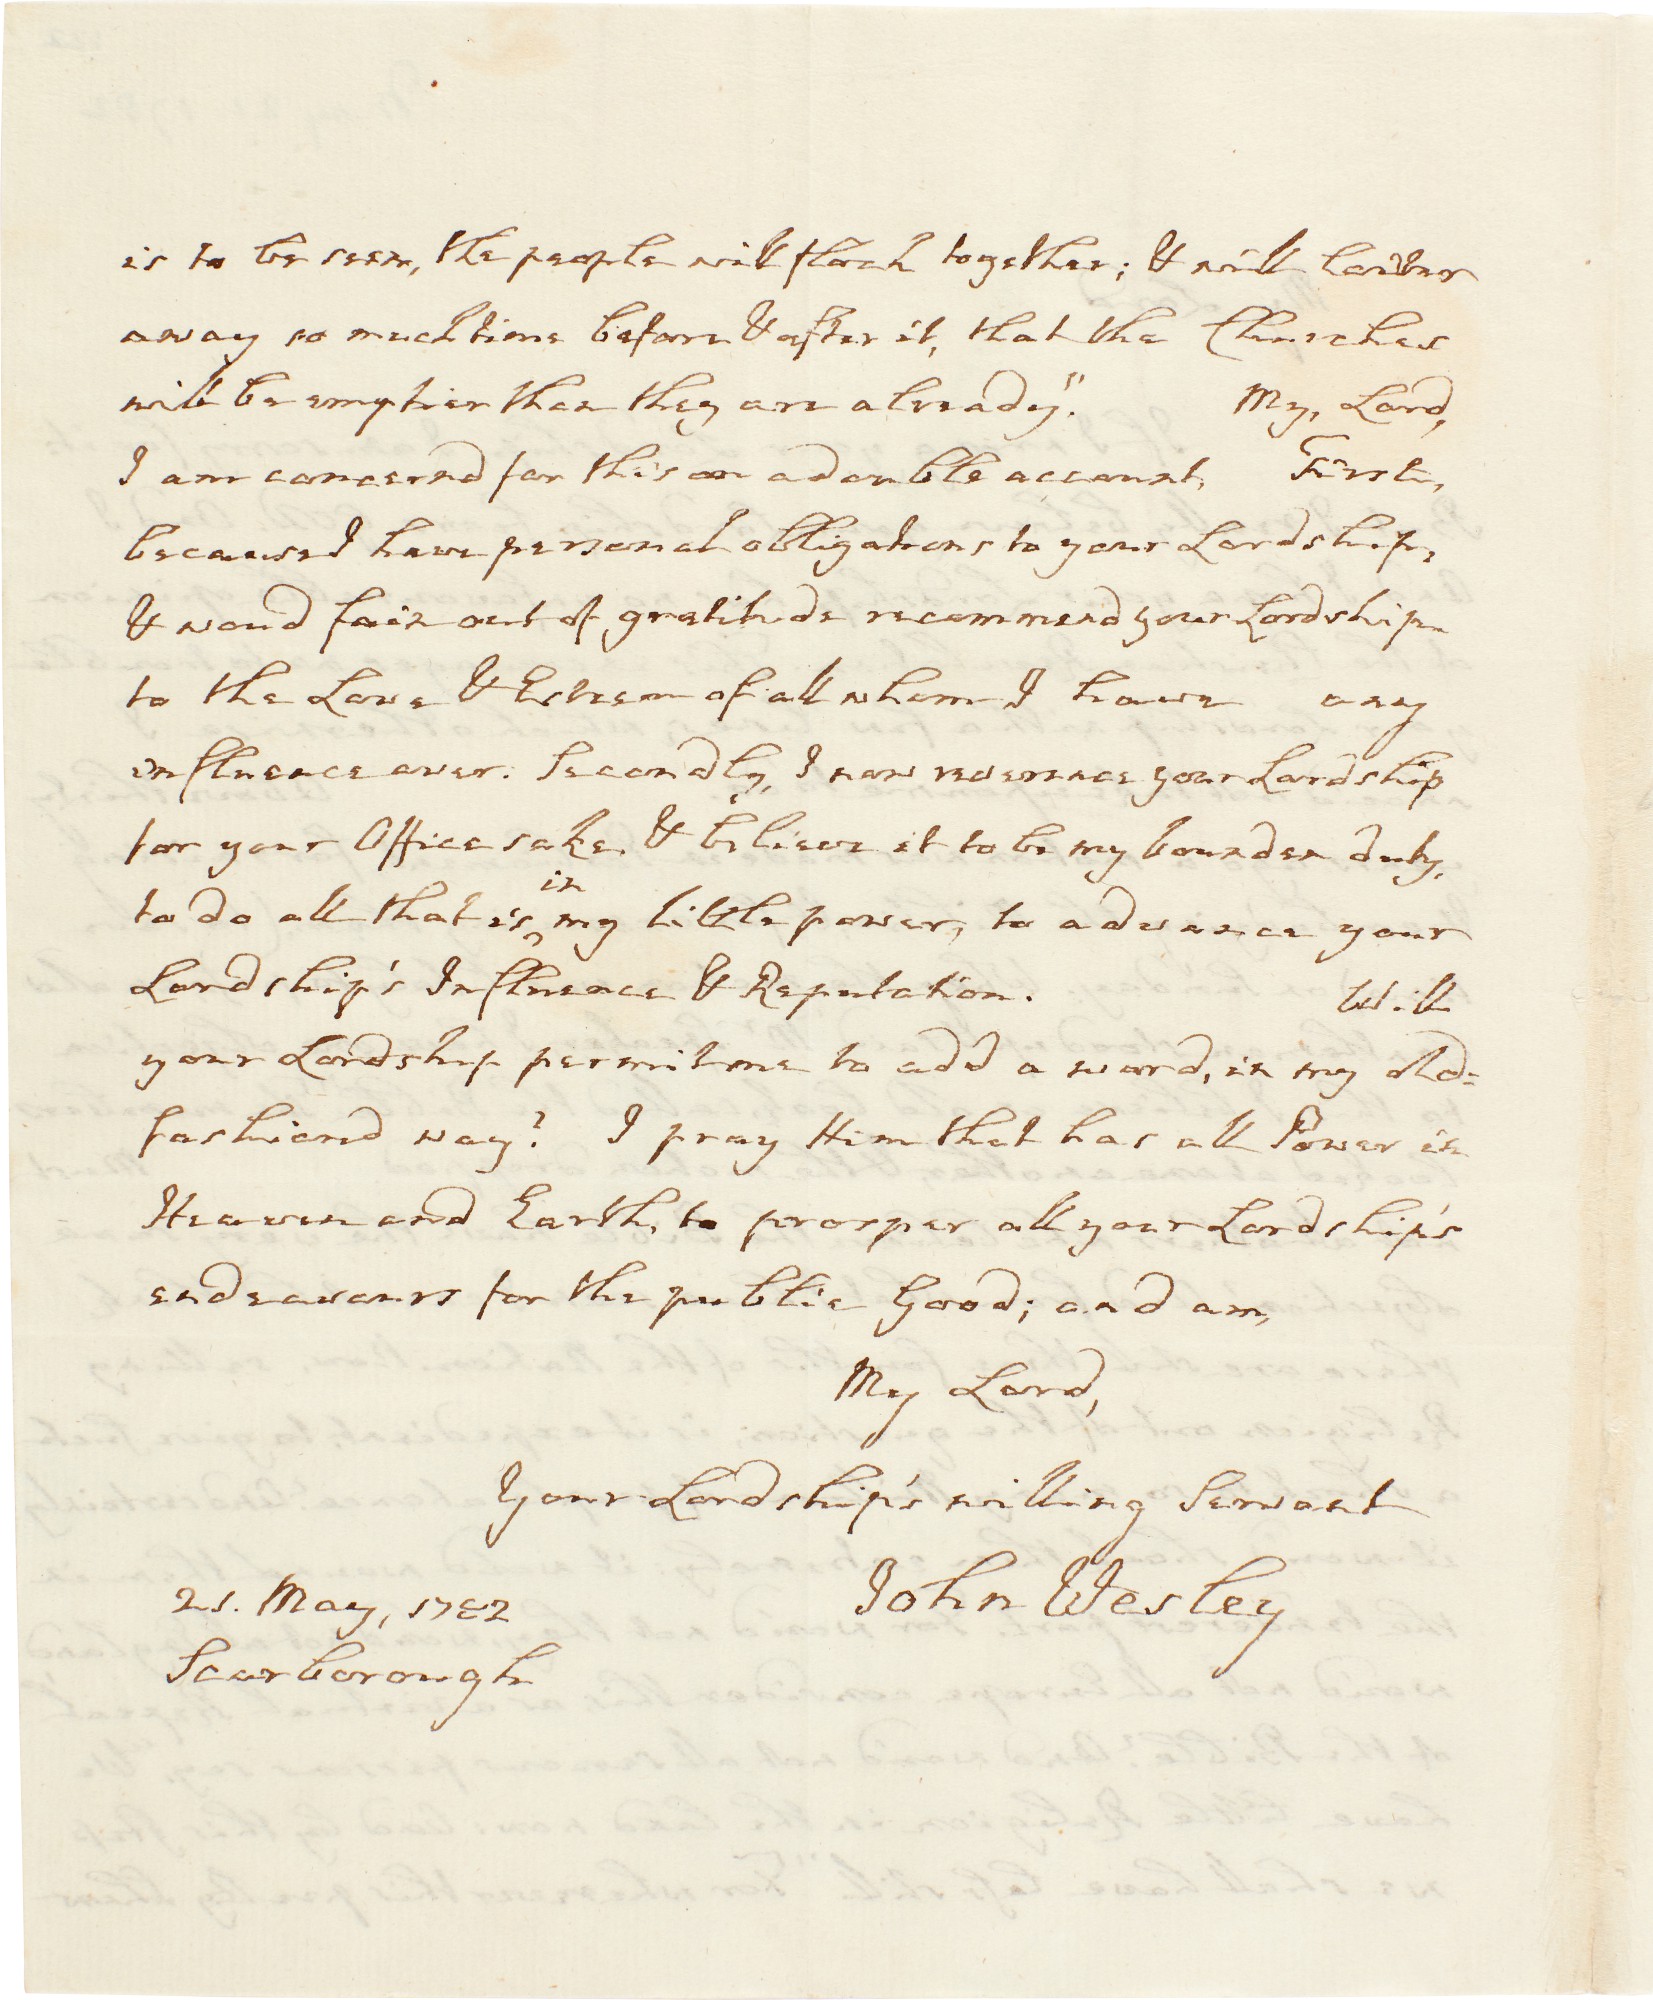 is to be seen, the people will flock together; & will loiter
away so much time before & after it, that the Churches
will be emptier than they are already."  My, Lord,
I am concernd for this on a double account. First,
because I have personal obligations to your Lordship,
& woud fain out of gratitude recommend your Lordship
to the Love & Esteem of all whom I have any
influence over. Secondly, I now reverence your Lordship
for your Office sake, & believe it to be my bounden duty,
to do all that is in my little power, to advance your
Lordship's Influence & Reputation. Will
your Lordship permit me to add a word, in my old-
fashiond way? I pray Him that has all Power in
Heaven and Earth, to prosper all your Lordship's
endeavours for the public Good; and am,
My Lord,
Your Lordship's willing Servant
John Wesley
21. May, 1782
Scarborough